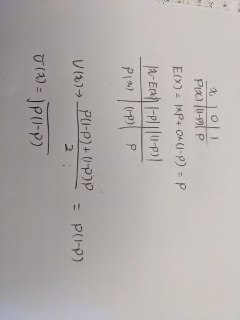 x | 0 | 1
P(x) | (1-p) | p
E(x) = 1xp + 0x(1-p) = p
|x-E(x)| | |-p| | |(1-p)|
P(x) | (1-p) | p
V(x) → p(1-p)+(1-p)p / 2 = p(1-p)
σ(x) = √p(1-p)